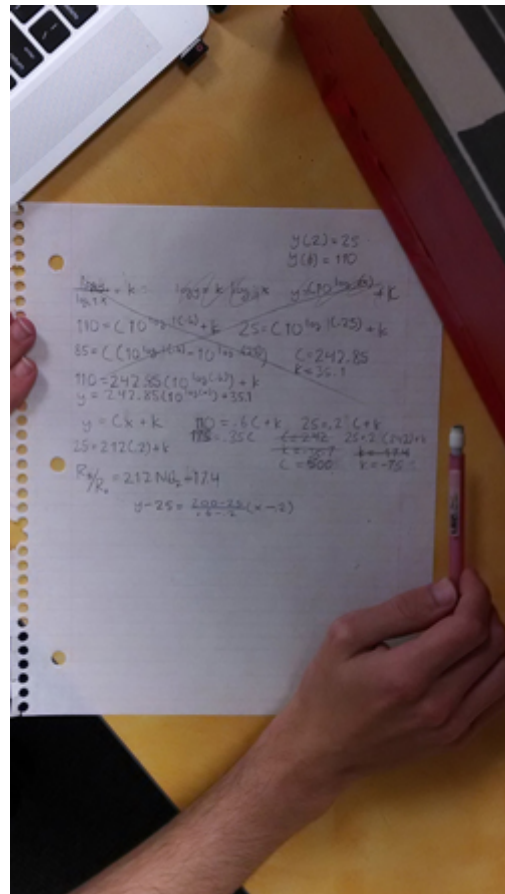 y(.2) = 25
y(.6) = 110
+ k =
y = C10^log + k
110 = C10^log.1(.6) + k 25 = C10^log.1(.25) + k
85 = C(10^log.1(.6) - 10^log.1(.25)) C = 242.85
k = 35.1
110 = 242.85(10^log(.6)) + k
y = 242.85(10^log(x)) + 35.1
y = Cx + k 110 = .6C + k 25 = .2 C + k
175 = .35C C = 242 25 = .2 (242) + k
25 = 212(.2) + k k = -17.4
C = 500 k = -75
Rs/Ro = 212 NO2 - 17.4
y - 25 = 200-25/.6-.2 (x - .2)